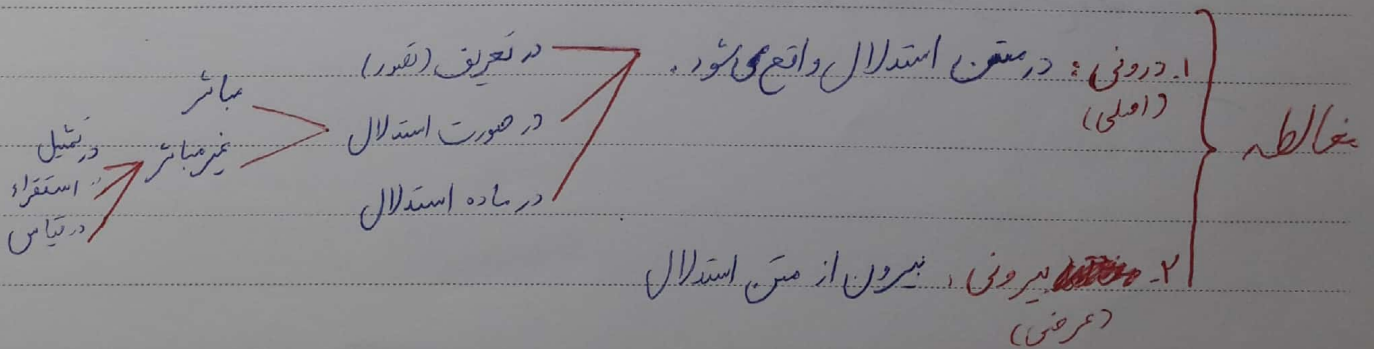 مغالطه
۱. درونی : در متن استدلال واقع می‌شود .
(اصلی)
در تعریف (تصور)
در صورت استدلال
مباشر
غیر مباشر
در تمثیل
استقراء
در قیاس
در ماده استدلال
۲. بیرونی : بیرون از متن استدلال
(عرضی)